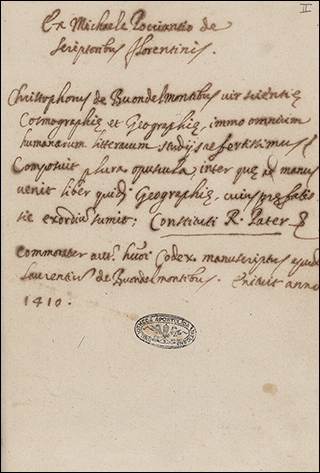 II
Ex Michaele Pocciantio de
scriptoribus florentinis.
Christophorus de Buondelmontibus vir scientię
Cosmographię et Geographię, immo omnium
humanarum litterarum studijs refertissimus
Composuit plura opuscula, inter quę ad manus
venit liber quidā Geographię, cuius
exordiū sumit: Constituti R. Pater
commoratur autē huiꝰ Codex manuscriptus apud
Laurentiū de Buondelmontibus. Enituit anno
1410.